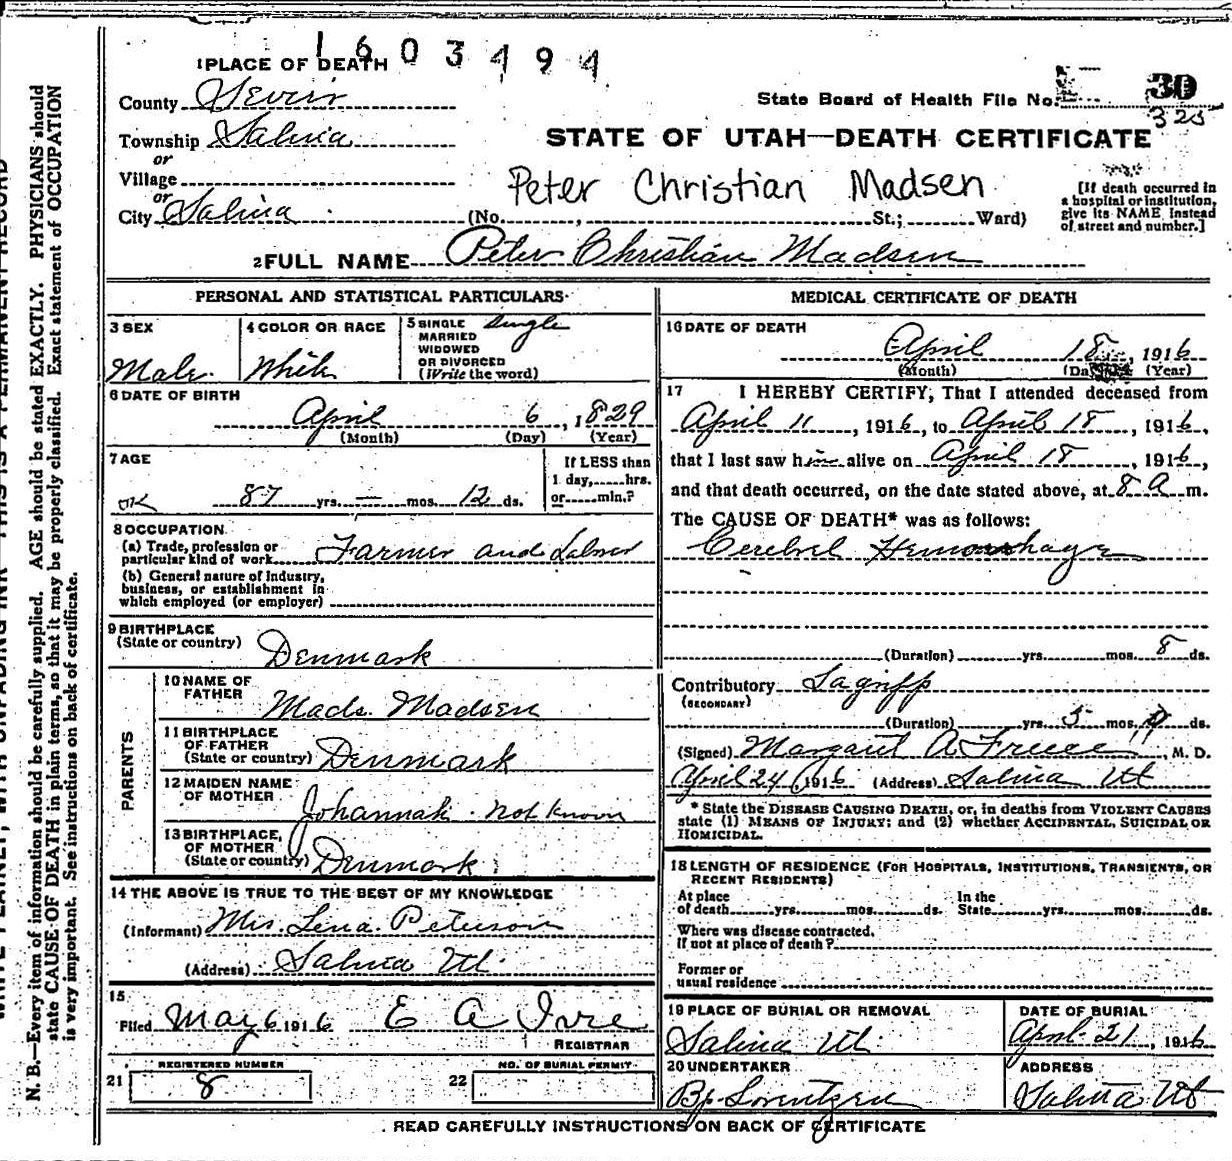 1603494
1 PLACE OF DEATH
County Sevier
State Board of Health File No. 30
325
Township Salina
STATE OF UTAH—DEATH CERTIFICATE
or
Village
Peter Christian Madsen
or
City Salina (No. , St.; Ward)
[If death occurred in
a hospital or institution,
give its NAME instead
of street and number.]
2 FULL NAME Peter Christian Madsen
PERSONAL AND STATISTICAL PARTICULARS
3 SEX
Male
4 COLOR OR RACE
White
5 SINGLE
MARRIED
WIDOWED
OR DIVORCED
(Write the word)
Single
6 DATE OF BIRTH
April 6, 1829
(Month) (Day) (Year)
7 AGE
OK 87 yrs. — mos. 12 ds.
If LESS than
1 day, hrs.
or min.?
8 OCCUPATION
(a) Trade, profession or
particular kind of work Farmer and Labor
(b) General nature of Industry,
business, or establishment in
which employed (or employer)
9 BIRTHPLACE
(State or country) Denmark
PARENTS
10 NAME OF
FATHER Mads. Madsen
11 BIRTHPLACE
OF FATHER
(State or country) Denmark
12 MAIDEN NAME
OF MOTHER Johannah not known
13 BIRTHPLACE
OF MOTHER
(State or country) Denmark
14 THE ABOVE IS TRUE TO THE BEST OF MY KNOWLEDGE
(Informant) Mrs. Lena Peterson
(Address) Salina Ut.
15
Filed May 6 1916 E A
REGISTRAR
REGISTERED NUMBER
21 8
NO. OF BURIAL PERMIT
22
MEDICAL CERTIFICATE OF DEATH
16 DATE OF DEATH
April 18, 1916
(Month) (Day) (Year)
17 I HEREBY CERTIFY, That I attended deceased from
April 11, 1916, to April 18, 1916,
that I last saw him alive on April 18, 1916,
and that death occurred, on the date stated above, at 8 a m.
The CAUSE OF DEATH* was as follows:
Cerebrel Hemorrhage
(Duration) yrs. mos. 8 ds.
Contributory Lagripp
(SECONDARY)
(Duration) yrs. 5 mos. ds.
(Signed) A Freece, M. D.
April 24 1916 (Address) Salina Ut
* State the DISEASE CAUSING DEATH, or, in deaths from VIOLENT CAUSES
state (1) MEANS OF INJURY; and (2) whether ACCIDENTAL, SUICIDAL OR
HOMICIDAL.
18 LENGTH OF RESIDENCE (FOR HOSPITALS, INSTITUTIONS, TRANSIENTS, OR
RECENT RESIDENTS)
At place
of death yrs. mos. ds.
In the
State yrs. mos. ds.
Where was disease contracted,
if not at place of death?
Former or
usual residence
19 PLACE OF BURIAL OR REMOVAL
Salina Ut.
DATE OF BURIAL
April 21, 1916
20 UNDERTAKER
Bp. Lorentzen
ADDRESS
Salina Ut
READ CAREFULLY INSTRUCTIONS ON BACK OF CERTIFICATE
N. B.—Every item of information should be carefully supplied. AGE should be stated EXACTLY. PHYSICIANS should
state CAUSE OF DEATH in plain terms, so that it may be properly classified. Exact statement of OCCUPATION
is very important. See instructions on back of certificate.